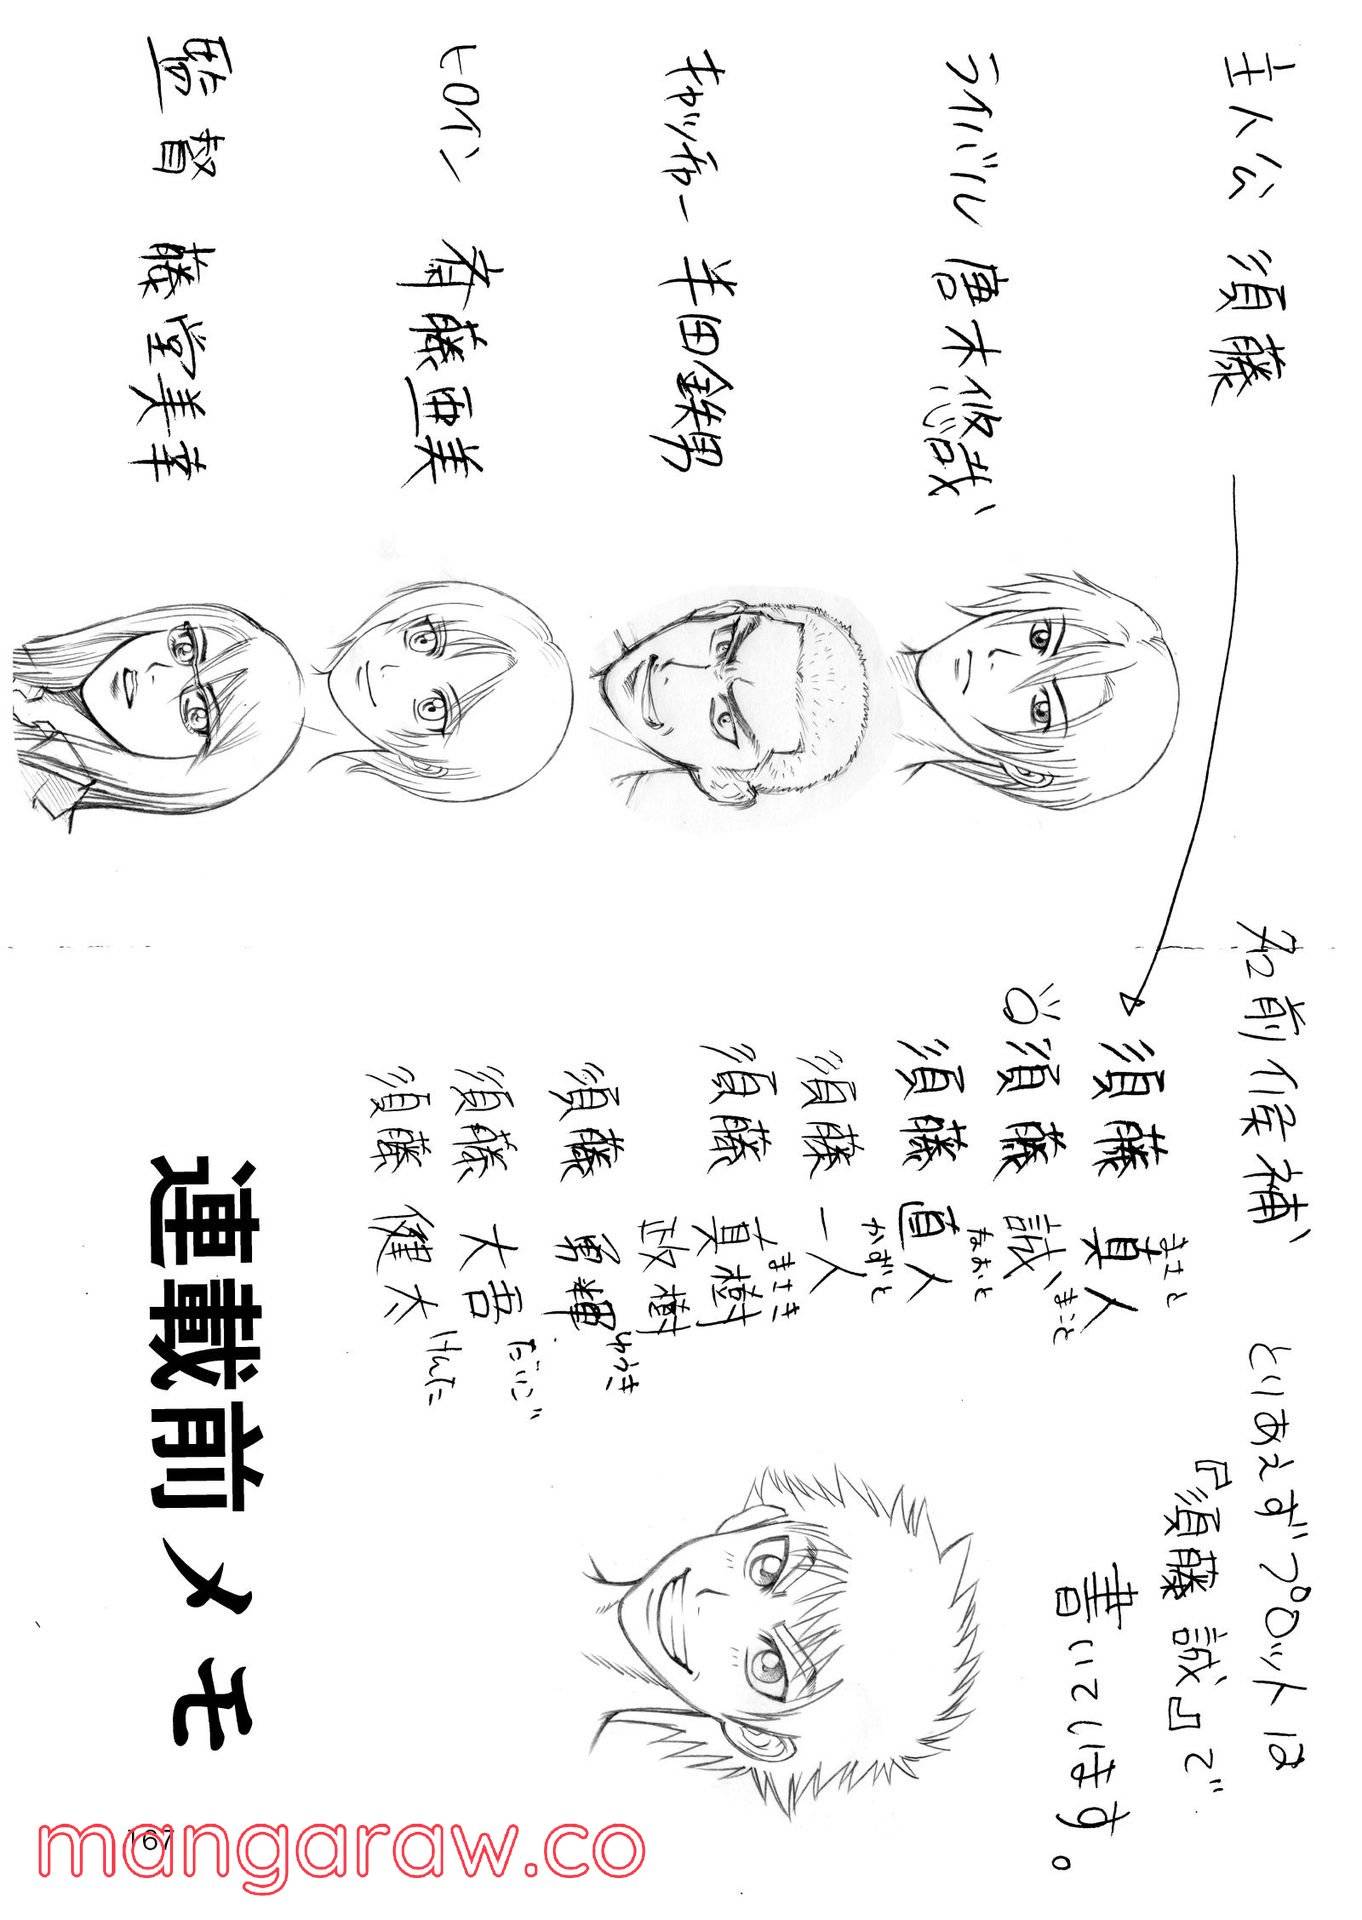 主人公 須藤
ライバル 唐木修哉
キャッチャー 半田鉄男
ヒロイン 斉藤亜美
監督 藤堂美幸
名前候補
須藤 真人 まこと
須藤 誠 まこと
須藤 直人 なおと
須藤 一人 かずと
須藤 真樹 まさき
政樹
須藤 勇輝 ゆうき
須藤 大吾 だいご
須藤 健太 けんた
とりあえずプロットは
『須藤 誠』で
書いています。
連載前メモ
167
mangaraw.co